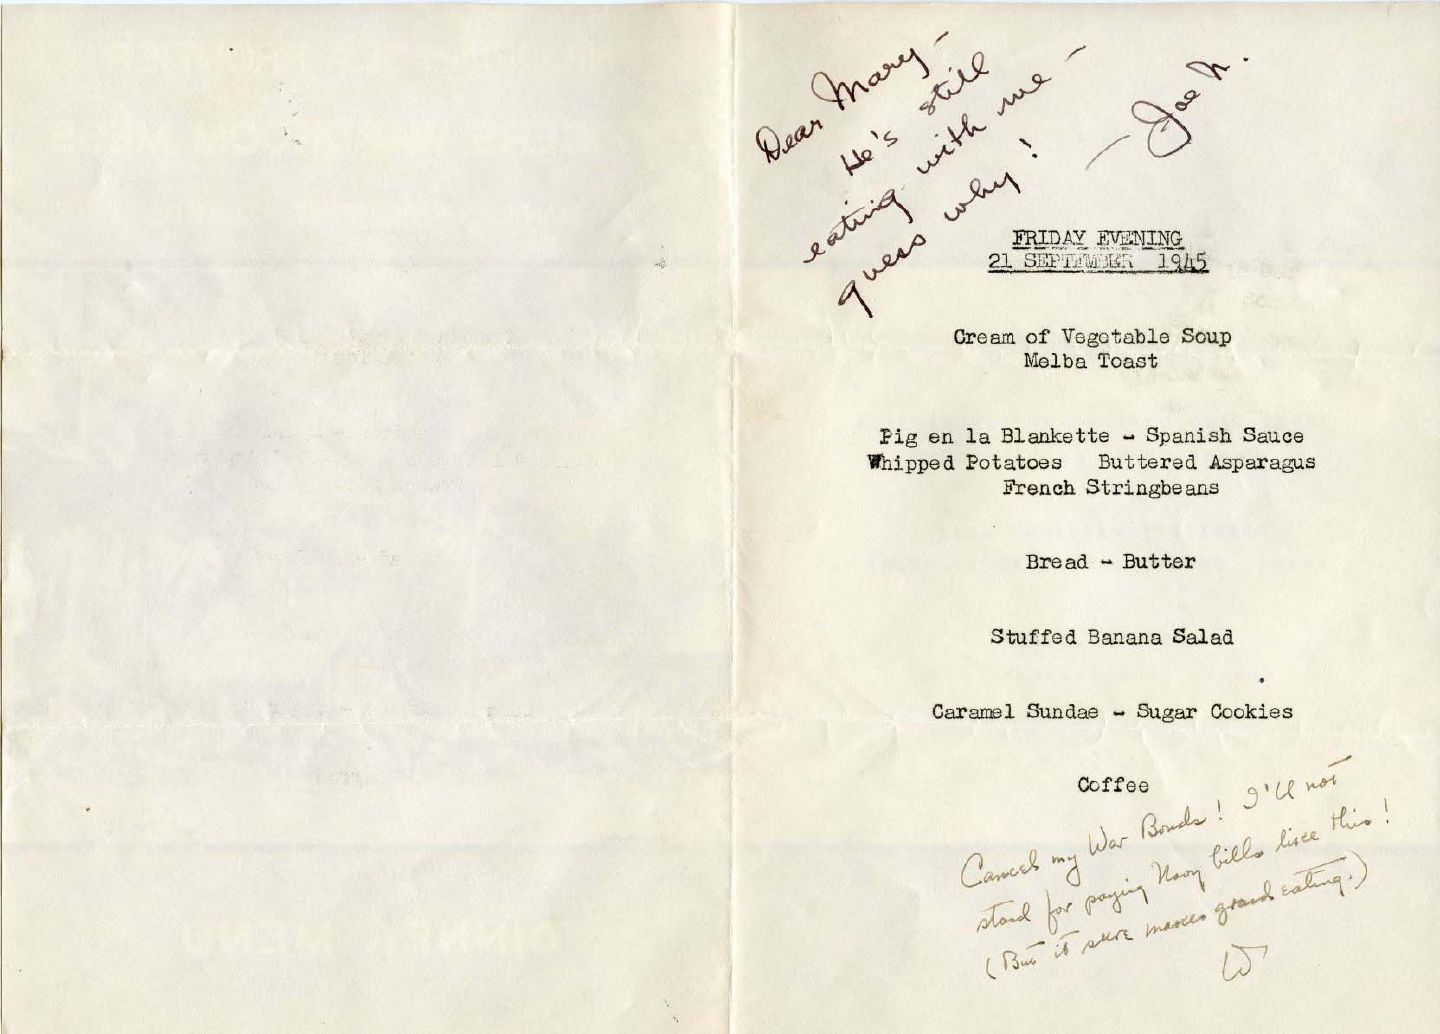 Dear Mary –
He's still
eating with me –
guess why!
— Joe N.
FRIDAY EVENING
21 SEPTEMBER 1945
Cream of Vegetable Soup
Melba Toast
Pig en la Blankette - Spanish Sauce
Whipped Potatoes Buttered Asparagus
French Stringbeans
Bread - Butter
Stuffed Banana Salad
Caramel Sundae - Sugar Cookies
Coffee
Cancel my War Bonds! I'll not
stand for paying Navy bills like this!
(But it sure makes grand eating.)
W